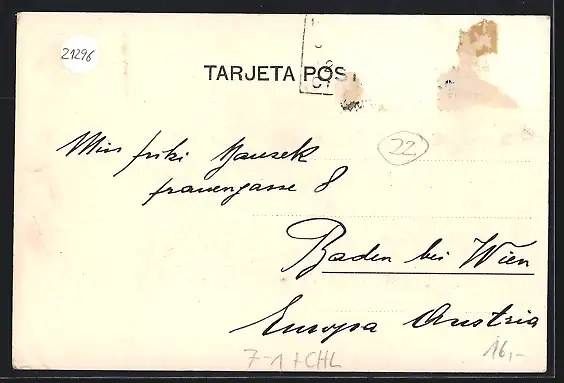 21296
TARJETA POST
22.
Miss friki Hausek
frauengasse 8
Baden bei Wien
Europa Austria
7-1 + CHL
16,-